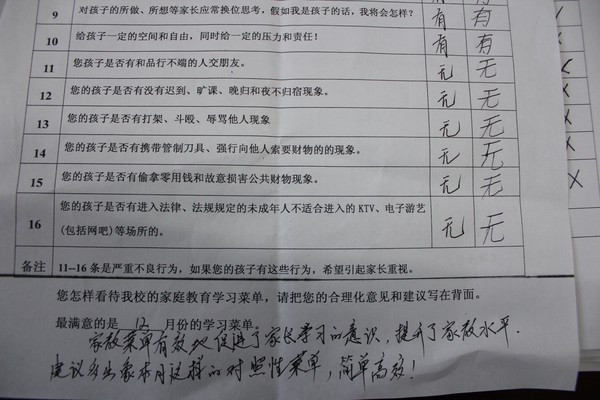 9 对孩子的所做、所想等家长应常换位思考，假如我是孩子的话，我将会怎样？ 有 有
10 给孩子一定的空间和自由，同时给一定的压力和责任！ 有 有
11 您的孩子是否有和品行不端的人交朋友。 无 无
12 您的孩子是否有没有迟到、旷课、晚归和夜不归宿现象。 无 无
13 您的孩子是否有打架、斗殴、辱骂他人现象 无 无
14 您的孩子是否有携带管制刀具、强行向他人索要财物的的现象。 无 无
15 您的孩子是否有偷拿零用钱和故意损害公共财物现象。 无 无
16 您的孩子是否有进入法律、法规规定的未成年人不适合进入的 KTV、电子游艺
(包括网吧)等场所的。 无 无
备注 11--16 条是严重不良行为，如果您的孩子有这些行为，希望引起家长重视。
您怎样看待我校的家庭教育学习菜单，请把您的合理化意见和建议写在背面。
最满意的是 12 月份的学习菜单。
家教菜单有效地促进了家长学习的意识，提升了家教水平.
建议多出象本月这样的对照性菜单，简单高效！